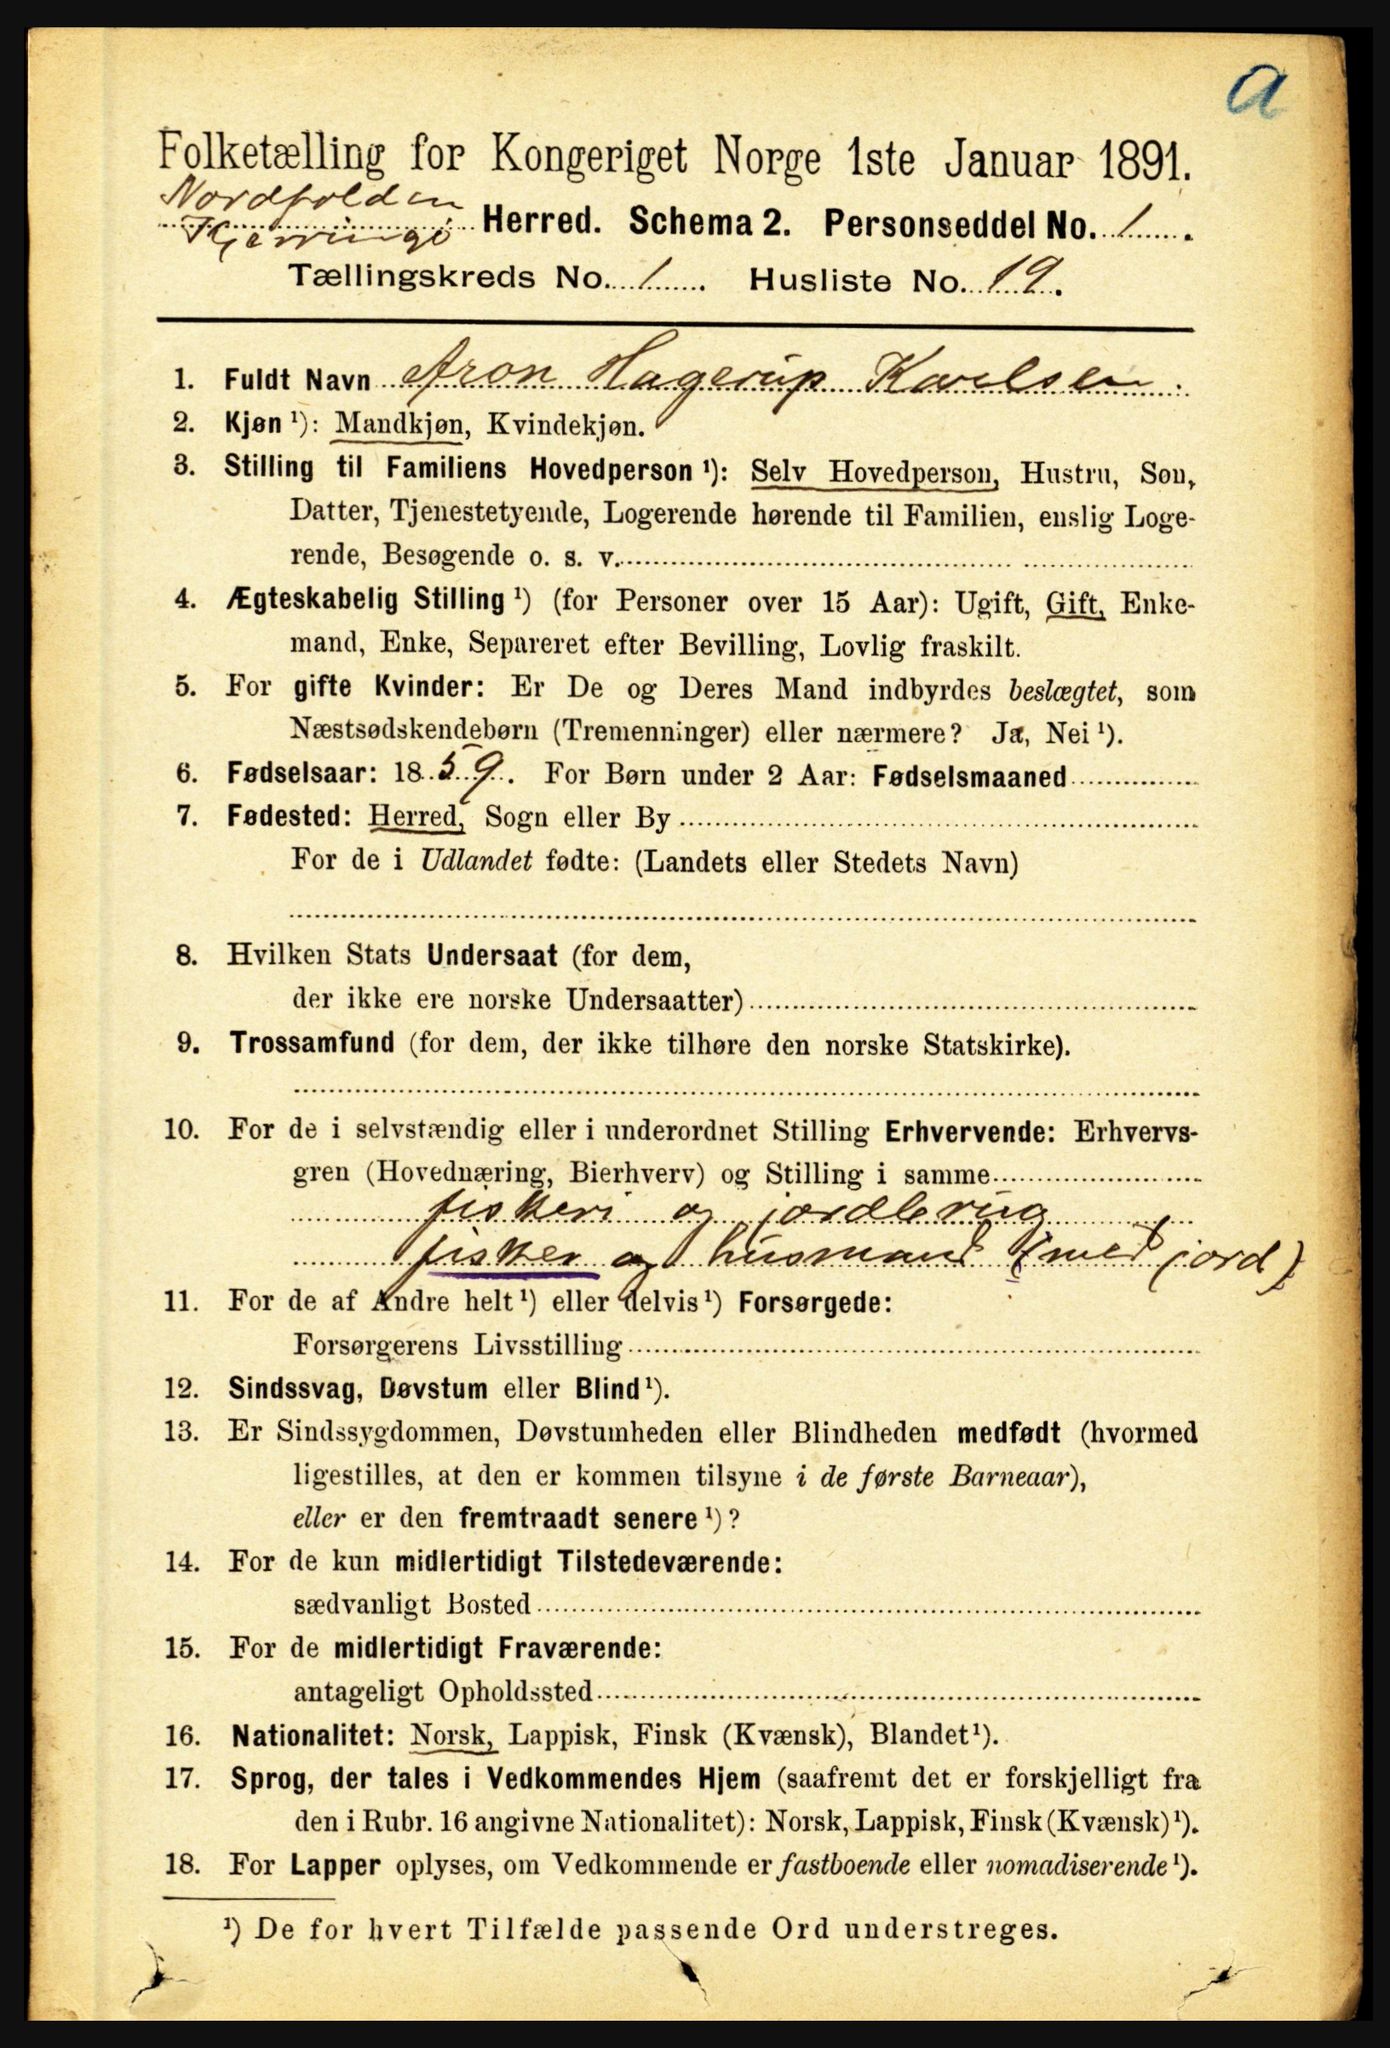 a
Folketælling for Kongeriget Norge 1ste Januar 1891.
Nordfolden
Kjerringø Herred. Schema 2. Personseddel No. 1.
Tællingskreds No. 1. Husliste No. 19.
1. Fuldt Navn Aron Hagerup Karlsen.
2. Kjøn ¹): Mandkjøn, Kvindekjøn.
3. Stilling til Familiens Hovedperson ¹): Selv Hovedperson, Hustru, Søn,
Datter, Tjenestetyende, Logerende hørende til Familien, enslig Loge-
rende, Besøgende o. s. v.
4. Ægteskabelig Stilling ¹) (for Personer over 15 Aar): Ugift, Gift, Enke-
mand, Enke, Separeret efter Bevilling, Lovlig fraskilt.
5. For gifte Kvinder: Er De og Deres Mand indbyrdes beslægtet, som
Næstsødskendebørn (Tremenninger) eller nærmere? Ja, Nei ¹).
6. Fødselsaar: 1859. For Børn under 2 Aar: Fødselsmaaned
7. Fødested: Herred, Sogn eller By
For de i Udlandet fødte: (Landets eller Stedets Navn)
8. Hvilken Stats Undersaat (for dem,
der ikke ere norske Undersaatter)
9. Trossamfund (for dem, der ikke tilhøre den norske Statskirke).
10. For de i selvstændig eller i underordnet Stilling Erhvervende: Erhvervs-
gren (Hovednæring, Bierhverv) og Stilling i samme
fiskeri og jordbrug
fisker og husmand (med jord)
11. For de af Andre helt ¹) eller delvis ¹) Forsørgede:
Forsørgerens Livsstilling
12. Sindssvag, Døvstum eller Blind ¹).
13. Er Sindssygdommen, Døvstumheden eller Blindheden medfødt (hvormed
ligestilles, at den er kommen tilsyne i de første Barneaar),
eller er den fremtraadt senere ¹)?
14. For de kun midlertidigt Tilstedeværende:
sædvanligt Bosted
15. For de midlertidigt Fraværende:
antageligt Opholdssted
16. Nationalitet: Norsk, Lappisk, Finsk (Kvænsk), Blandet ¹).
17. Sprog, der tales i Vedkommendes Hjem (saafremt det er forskjelligt fra
den i Rubr. 16 angivne Nationalitet): Norsk, Lappisk, Finsk (Kvænsk) ¹).
18. For Lapper oplyses, om Vedkommende er fastboende eller nomadiserende ¹).
¹) De for hvert Tilfælde passende Ord understreges.